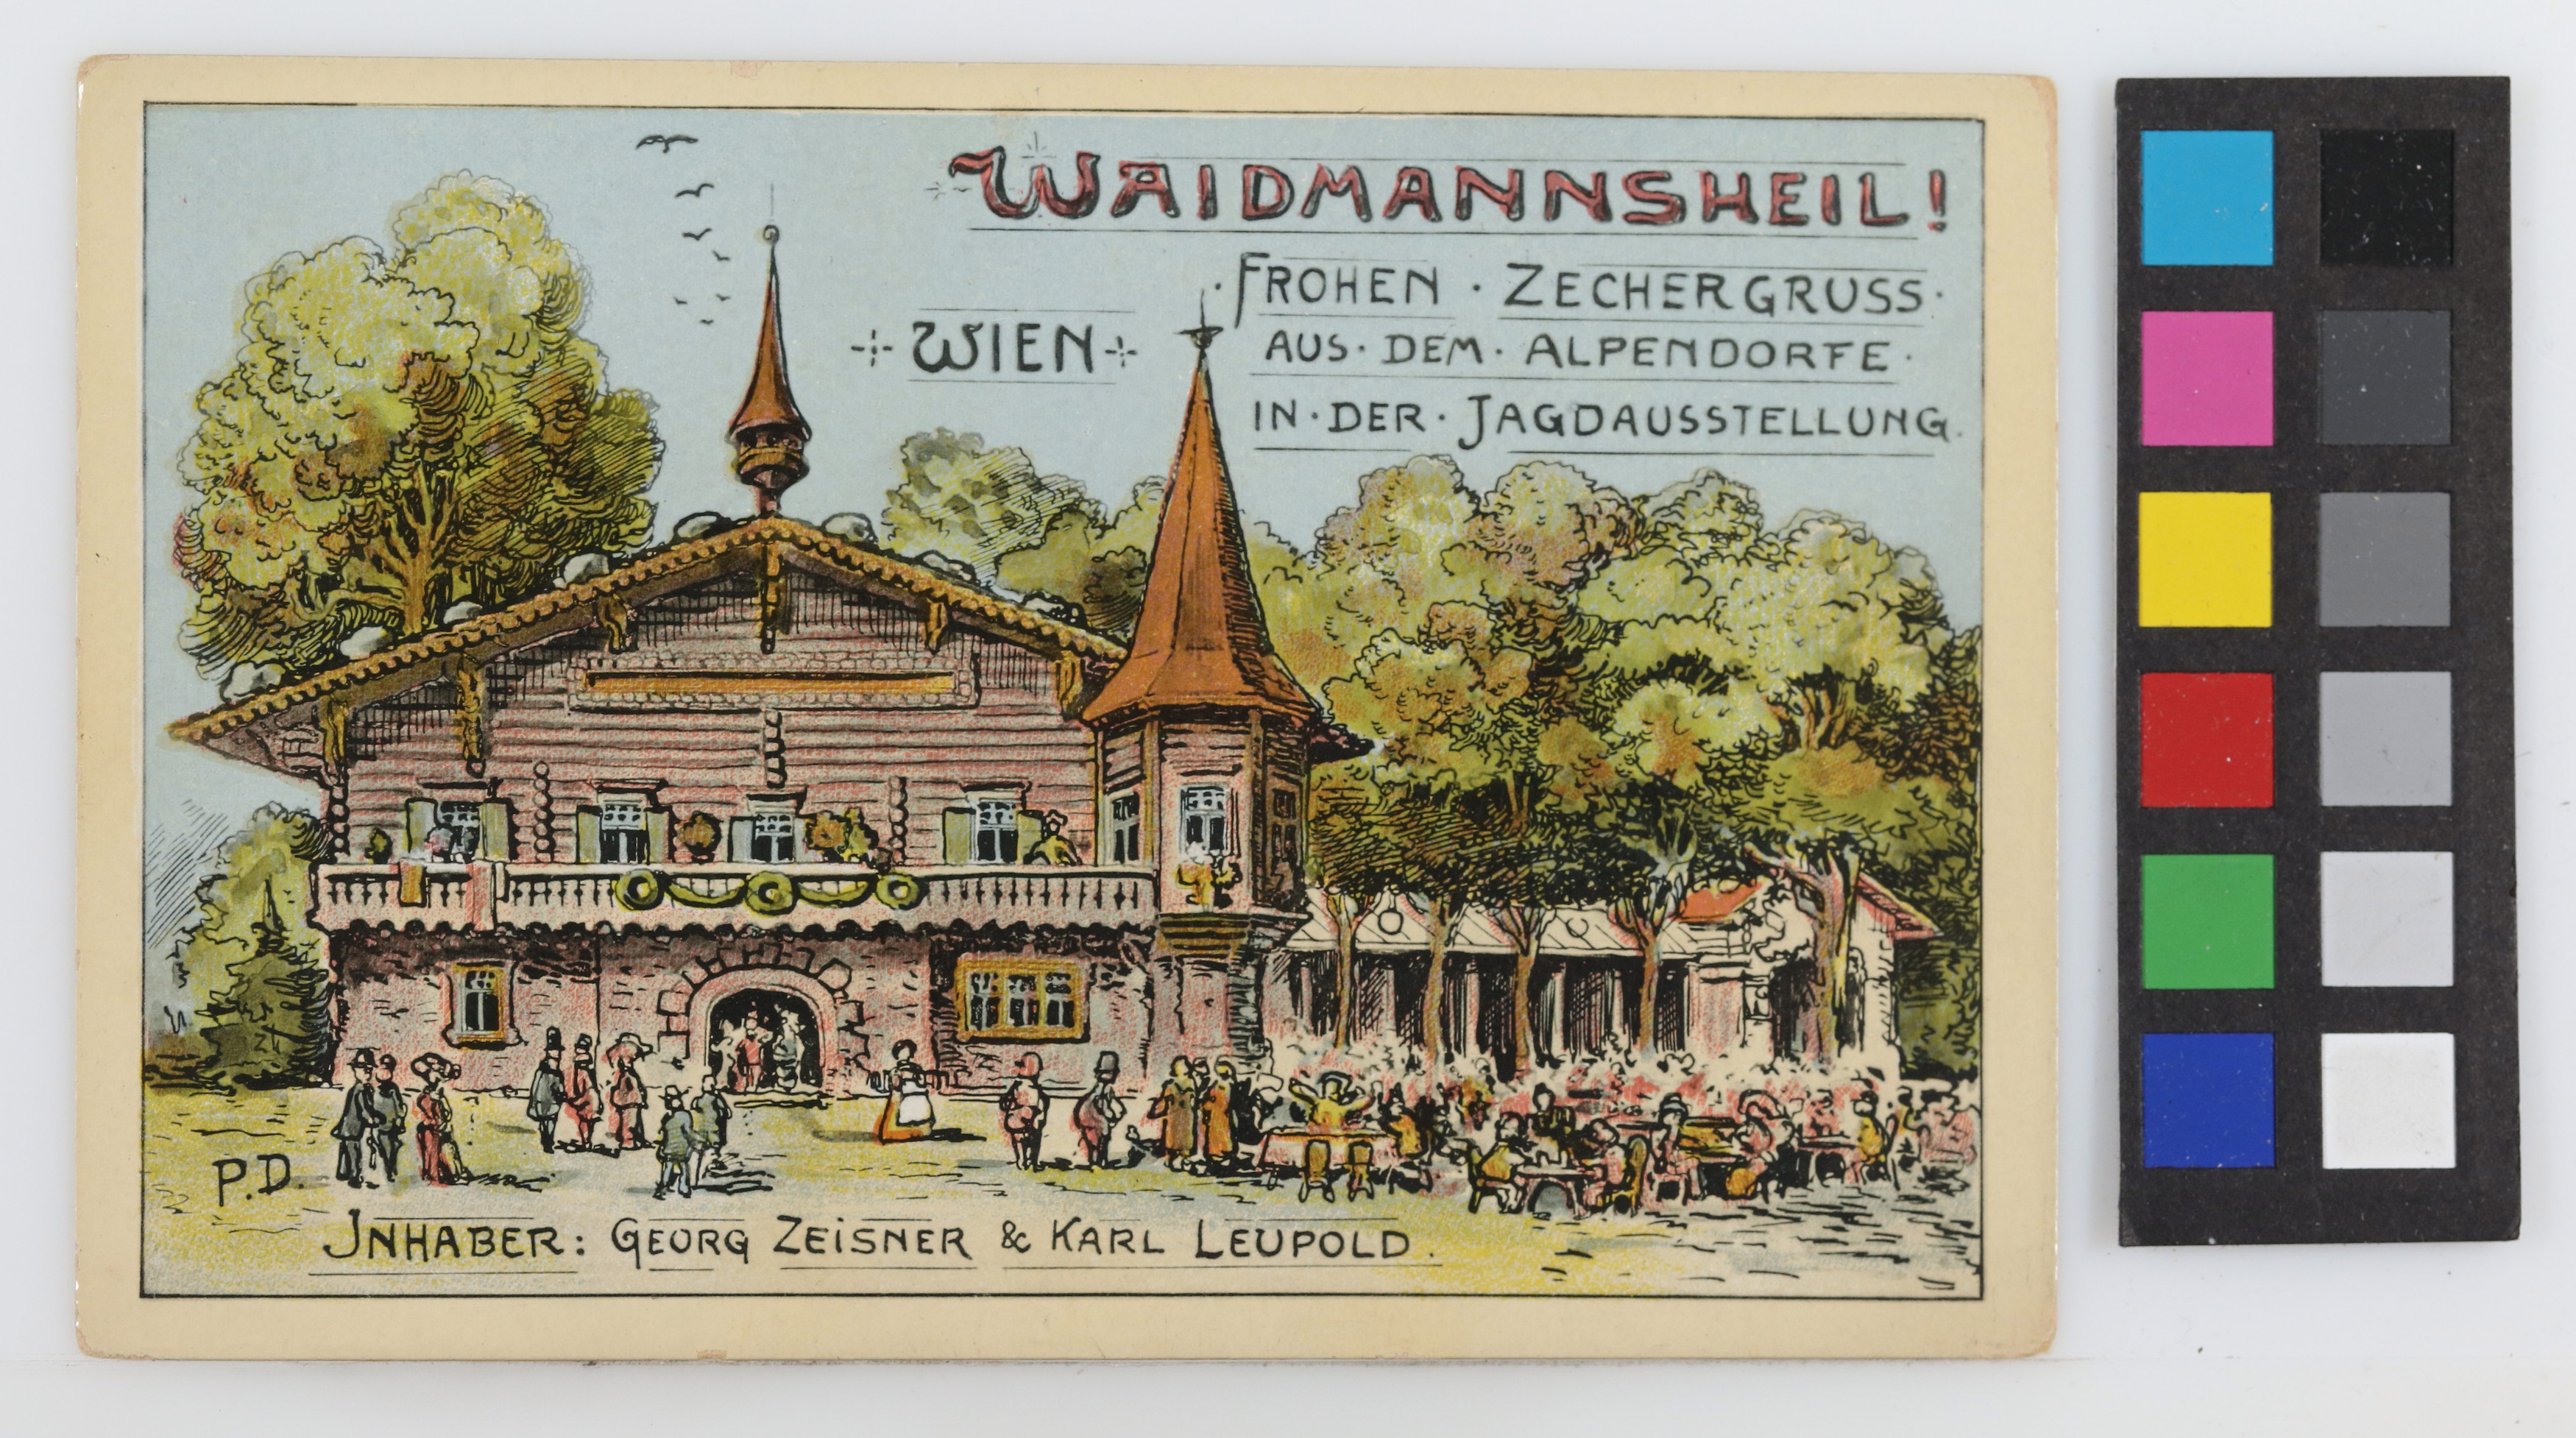 WAIDMANNSHEIL!
· FROHEN · ZECHERGRUSS ·
WIEN
AUS · DEM · ALPENDORFE ·
IN · DER · JAGDAUSSTELLUNG.
P.D.
JNHABER: GEORG ZEISNER & KARL LEUPOLD.